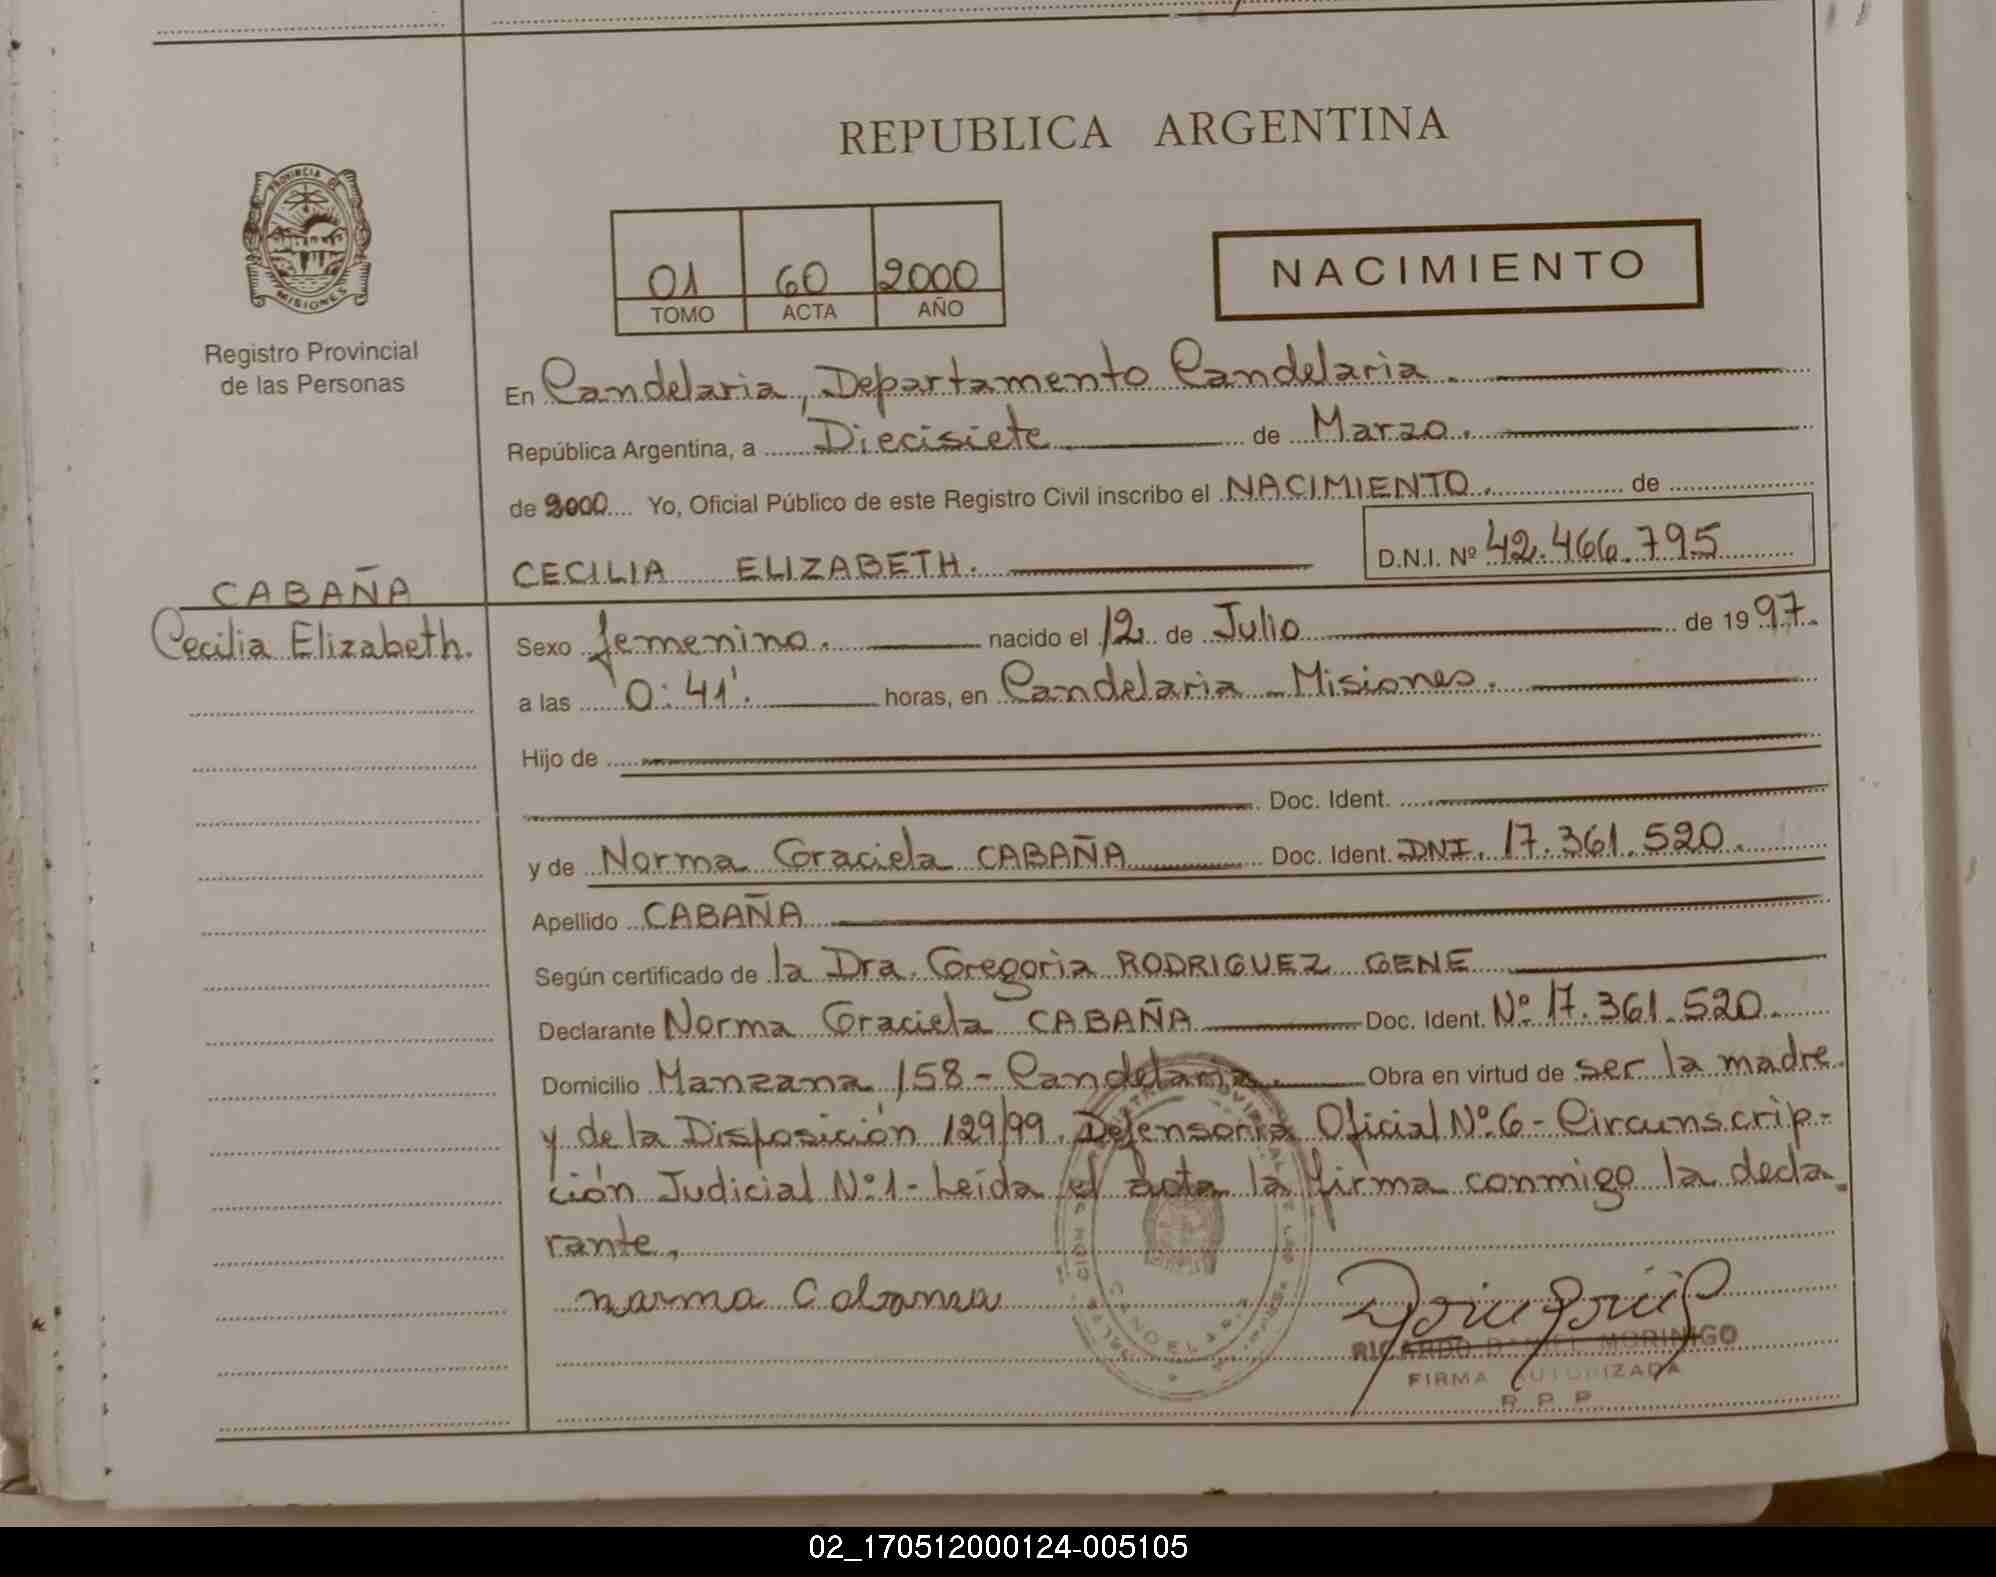 REPUBLICA ARGENTINA
PROVINCIA DE
MISIONES
Registro Provincial
de las Personas
01 60 2000
TOMO ACTA AÑO
NACIMIENTO
En Candelaria, Departamento Candelaria.
República Argentina, a Diecisiete de Marzo.
de 2000 Yo, Oficial Público de este Registro Civil inscribo el NACIMIENTO. de
CECILIA ELIZABETH. D.N.I. Nº 42.466.795
CABAÑA
Cecilia Elizabeth.
Sexo femenino. nacido el 12 de Julio de 1997.
a las 0:41'. horas, en Candelaria - Misiones.
Hijo de
Doc. Ident.
y de Norma Graciela CABAÑA Doc. Ident. DNI. 17.361.520.
Apellido CABAÑA
Según certificado de la Dra. Gregoria RODRIGUEZ GENE
Declarante Norma Graciela CABAÑA Doc. Ident. Nº 17.361.520.
Domicilio Manzana 158 - Candelaria. Obra en virtud de ser la madre
y de la Disposición 129/99. Defensoría Oficial Nº 6 - Circunscrip-
ción Judicial Nº 1 - Leída el acta la firma conmigo la decla-
rante,
norma Cabama
CANDELARIA
RICARDO DANIEL MORINIGO
FIRMA AUTORIZADA
R. P. P.
02_170512000124-005105